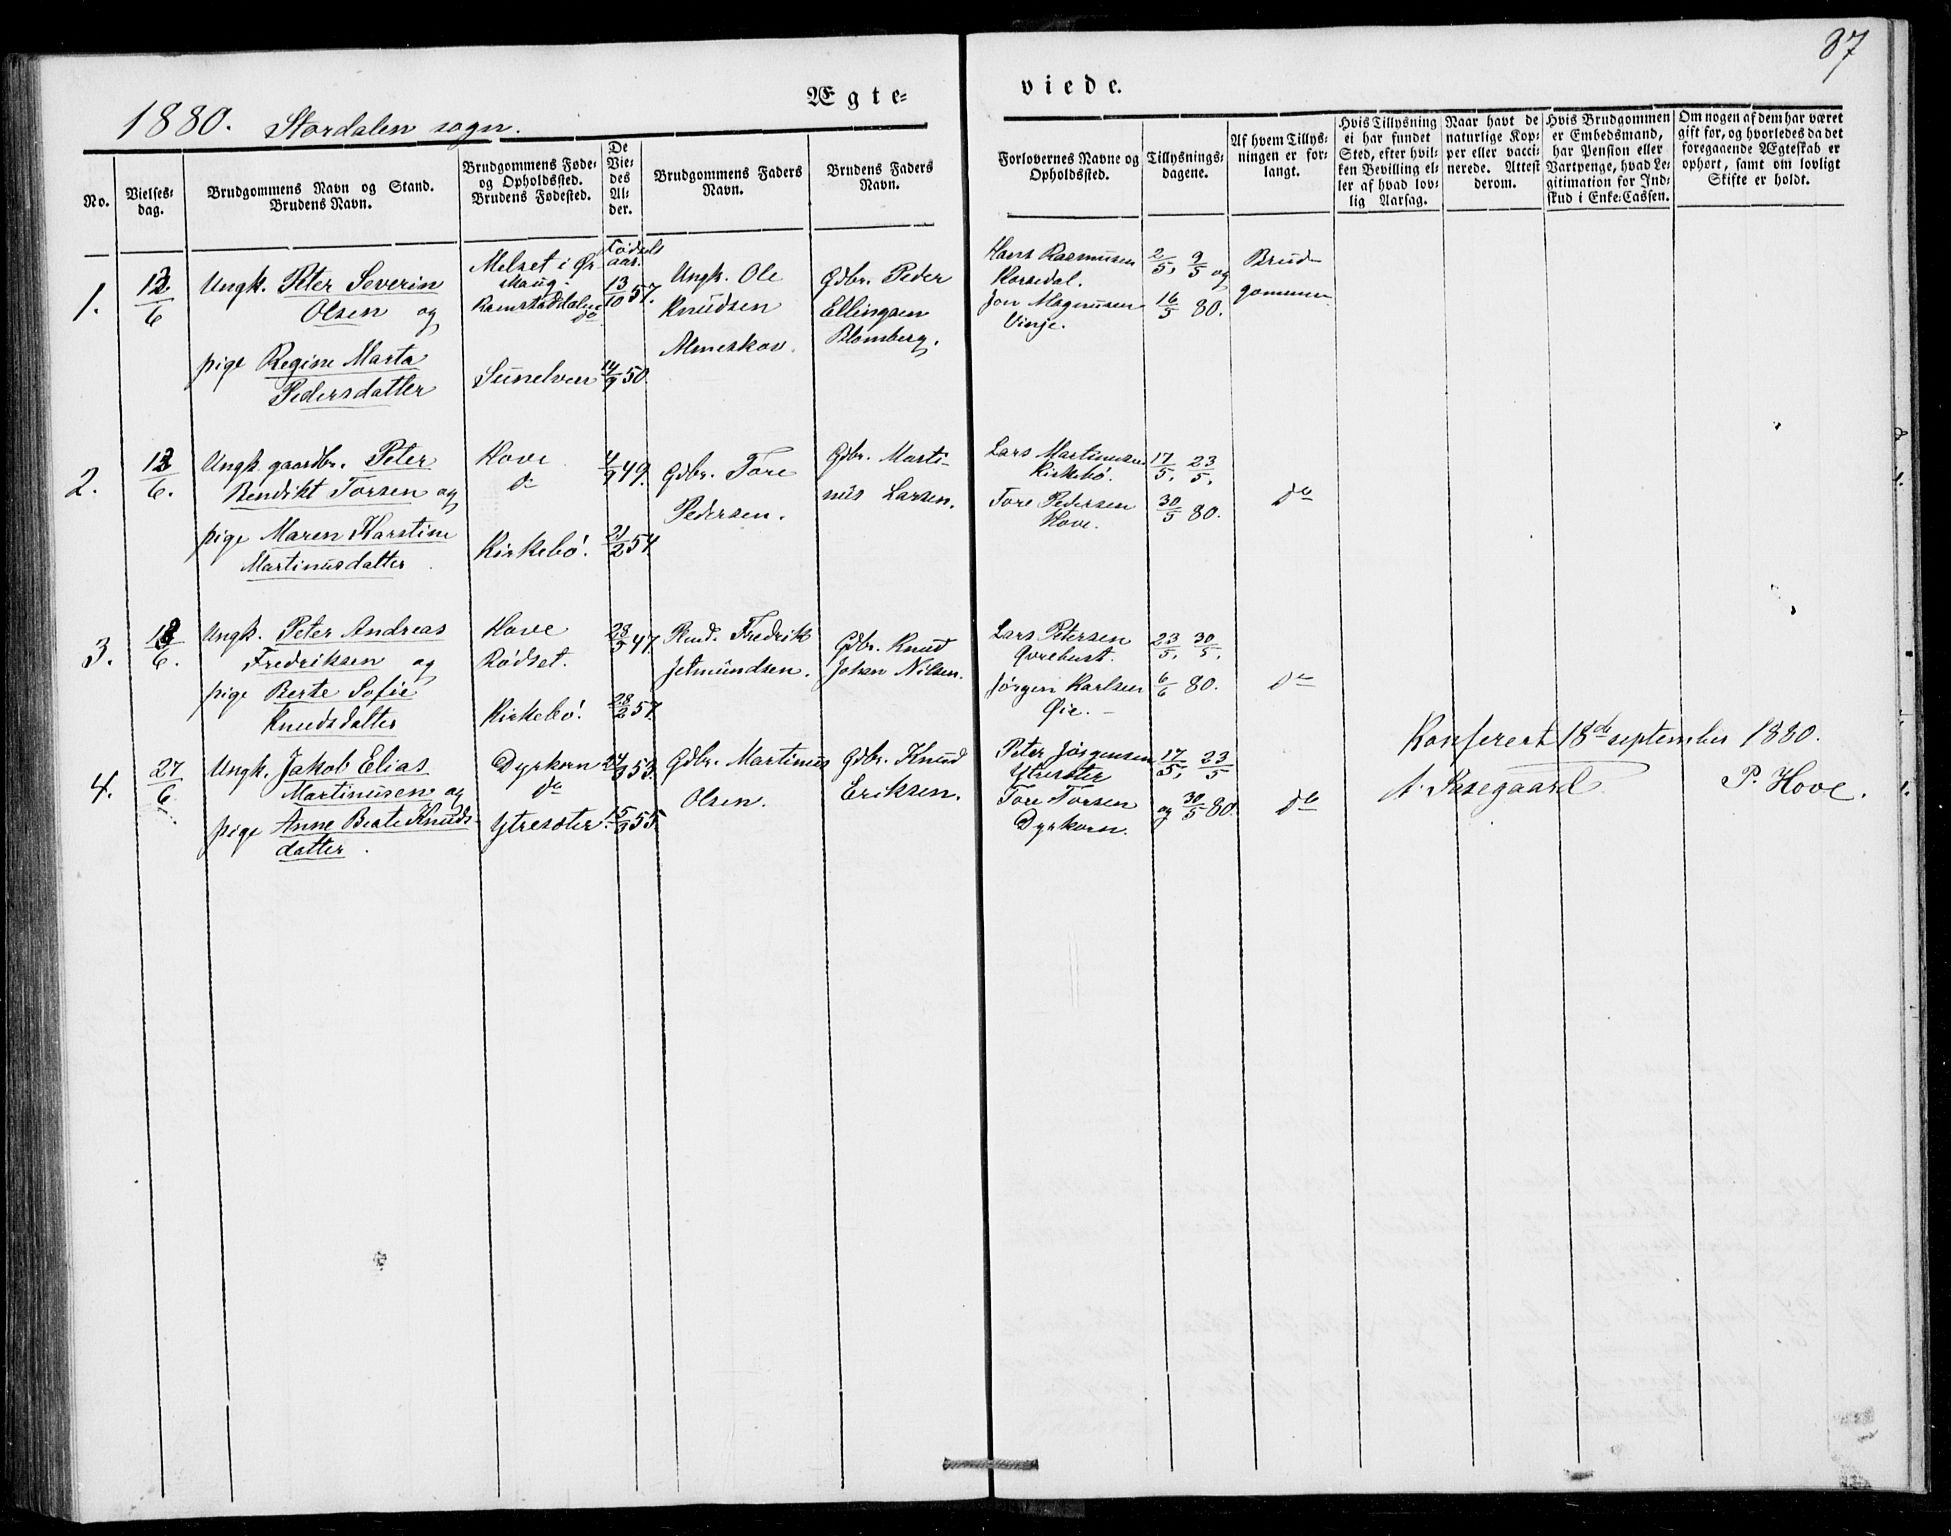 87
Ægte=
viede.
1880. Stordalen sogn.
No.
Vielses-
dag.
Brudgommens Navn og Stand.
Brudens Navn.
Brudgommens Føde-
og Opholdssted.
Brudens Fødested.
De
Vie-
des
Al-
der.
Brudgommens Faders
Navn.
Brudens Faders
Navn.
Forlovernes Navne og
Opholdssted.
Tillysnings-
dagene.
Af hvem Tillys-
ningen er for-
langt.
Hvis Tillysning
ei har fundet
Sted, efter hvil-
ken Bevilling el-
ler af hvad lov-
lig Aarsag.
Naar havt de
naturlige Kop-
per eller vacci-
nerede. Attest
derom.
Hvis Brudgommen
er Embedsmand,
har Pension eller
Vartpenge, hvad Le-
gitimation for Ind-
skud i Enke-Cassen.
Om nogen af dem har været
gift før, og hvorledes da det
foregaaende Ægteskab er
ophørt, samt om lovligt
Skifte er holdt.
Fødsels
aar.
1.
12/6
Ungk. Peter Severin
Olsen og
pige Regine Marta
Pedersdatter
Melset i Ør-
skaug.
do
Sunelven
13/10 57.
14/9 50.
Ungk. Ole
Knudsen
Almeskov.
Gdbr. Peder
Ellingsen
Blomberg.
Hans Rasmusen
Korsedal.
Jon Magnusen
Vinje.
2/5, 9/5 og
16/5 80.
Brud-
gommen
2.
12/6.
Ungk. gaardbr. Peter
Bendikt Torsen og
pige Maren Karstine
Martinusdatter
Hove
do
Kirkebø.
4/9 49.
21/2 54
Gdbr. Tore
Pedersen.
Gdbr. Marti-
nus Larsen.
Lars Martinusen
Kirkebø.
Tore Pedersen
Hove.
17/5, 23/5,
30/5 80.
do
3.
13/6.
Ungk. Peter Andreas
Fredriksen og
pige Berte Sofie
Knudsdatter
Hove
Rødset.
Kirkebø.
47.
28/2 57.
Fredrik
Jetmundsen.
Gdbr. Knud
Johan Nilsen.
Lars Petersen
Øvrebust.
Jørgen Karlsen
Øie.
23/5, 30/5,
6/6 80.
do
4.
27/6.
Ungk. Jakob Elias
Martinusen og
pige Anne Beate Knuds-
datter.
Dyrkorn
do
Ytresøter.
53.
15/9 55.
Gdbr. Martinus
Olsen.
Gdbr. Knud
Eriksen.
Peter Jørgensen
Ytresøter
Tore Torsen
Dyrkorn.
17/5, 23/5
og 30/5 80.
do
Konferert 18de september 1880.
P. Hove.